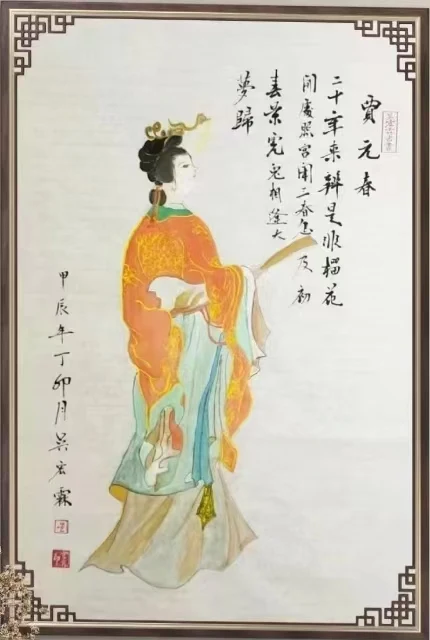 賈元春
二十年来辨是非榴花
開處照宮闱三春怎及初
春景虎兕相逢大
夢歸
甲辰年丁卯月吴宏霖